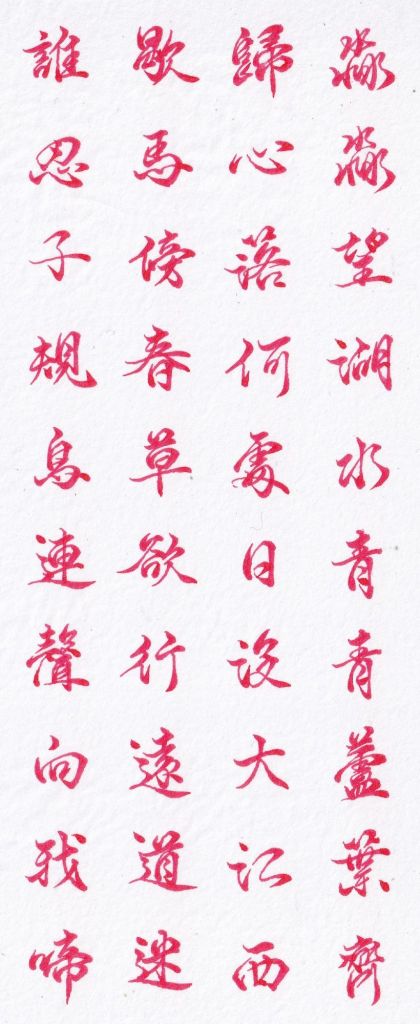 淼淼望湖水青青蘆葉齊
歸心落何處日没大江西
歇馬傍春草欲行遠道迷
誰忍子規鳥連聲向我啼